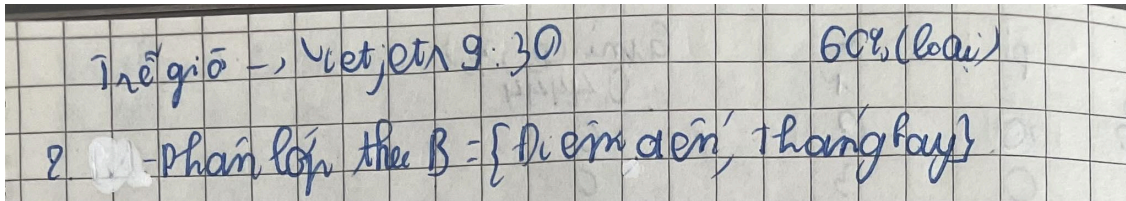 Trễ giờ → Vietjet ∧ 9:30 60% (loại)
2. - Phân lớp theo B = {Điểm đến, Tháng bay}